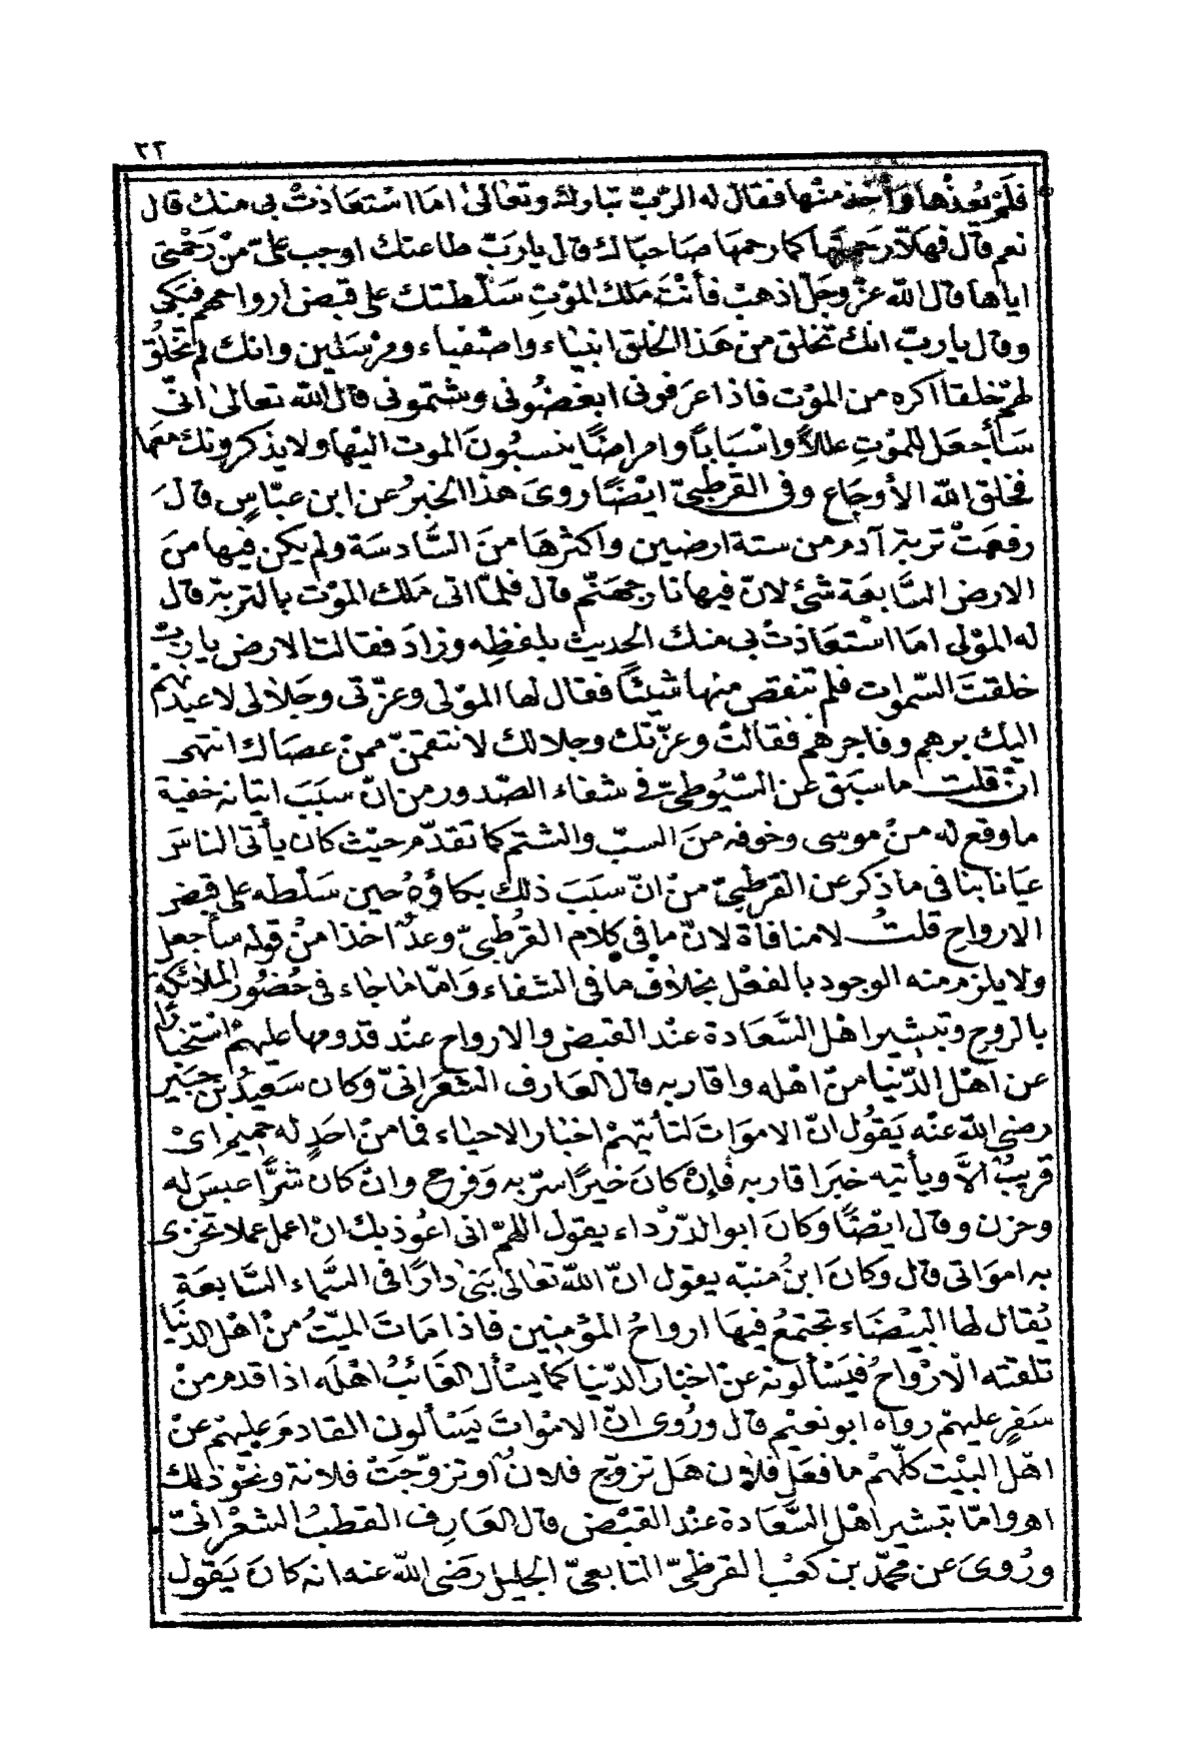 ٢٢
فلم يعذها وأخذ منها فقال له الرّبّ تبارك وتعالىٰ اما استعَاذتْ بى منك قال
نعم قال فهلاّ رحمتها كما رحمها صَاحبَاك قال يا ربّ طاعتك اوجب علىّ منْ رَحْمتى
اياها قال اللّه عزّ وجَلّ اذهبْ فأنْتَ مَلك الموْتِ سَلّطتك على قبض أرواحهم فبكى
وقال يا ربّ انّك تخلق منْ هَذا الخلق انبيَاء واصْفيَاء ومرْسَلين وانك لم تخْلُقْ
لهمْ خلقا اكره من الموْت فاذا عرَفونى ابغضُونى وشتمونى قال اللّه تعالىٰ انّى
سَأجعَل للموْتِ عللاً واسْبَاباً وامراضًا ينسبُونَ الموت اليْها ولا يذكرونك معَها
فخلق اللّه الأوجَاع وفى القرطبىّ ايْضًا روىَ هَذا الخبرُ عن ابن عبّاسٍ قالَ
رفعَتْ تربة آدم من ستة ارضين واكثرهَا منَ السَّادسَة ولم يكن فيها منَ
الارض السَّابعَة شئ لانّ فيها نار جهَنّم قال فلمّا اتى مَلك الموْت بالتربة قال
له الموْلى اما استعَاذتْ بى منك الحديث بلفظِه وزادَ فقالت الارض يا ربّ
خلقتَ السّموات فلم تنقص منها شيئًا فقال لها الموْلى وعزّتى وجَلالى لاعيدنهمْ
اليك برهم وفاجرهمْ فقالتْ وعزّتك وجلالك لانتقمنّ ممنْ عصَاك انتهى
انْ قلت ما سَبَق عن السّيُوطىّ فى شفاء الصّدور من انّ سبَبَ اتيانه خفية
ما وقع له منْ موسى وخوفه منَ السبّ والشتم كما تقدّم حيْث كان يأتى الناسَ
عيَانا ينافى ما ذكر عن القرطبىّ منْ انّ سبَبَ ذلك بكاؤهُ حين سَلّطه على قبض
الارواحِ قلتُ لا منافاة لانّ ما فى كلام القرُطبىّ وعدٌ اخذا منْ قوله سأجعل
ولا يلزم منه الوجود بالفعْل بخلافْ ما فى الشفاء وَامّا ما جاء فى حُضُور الملائكة
بالروحِ وتبشير اهْل السَّعَادة عنْد القبض والارواح عنْد قدومها عليهمْ استخبارًا
عن اهْل الدّنيا منْ اهْله واقاربه قال العَارف الشعَرَانىّ وَكان سَعيدُ بْن جبَيْر
رضى اللّه عنْه يَقُول انّ الاموَاتَ لتأتيهمْ اخبَار الاحيَاء فما منْ احَدٍ له حميم اىْ
قريبٌ الاَّ ويأتيه خبَر اقاربه فإنْ كانَ خيرًا سرّ به وَفرح وانْ كان شرًّا عبسَ له
وحزن وقال ايْضًا وَكانَ ابو الدّرْداء يقول اللهمّ انى اعُوذ بك انْ اعمل عملا تخزى
به اموَاتى قال وَكانَ ابنُ منبّه يقول انّ اللّه تعالىٰ بَنىٰ دارًا فى السَّماء السَّابعَة
يُقال لها البيْضاء تجتمعُ فيهَا ارواحُ المؤْمِنين فاذا مَاتَ الميّتُ منْ اهْل الدنيَا
تلقته الارْواحُ فيَسْألونه عنْ اخبَار الدّنيا كما يسْأل الغَائبُ اهْلَه اذا قدم منْ
سَفرٍ عليهمْ رواه ابو نعَيْم قال ورُوى انّ الامْواتَ يَسْألون القادمَ عليْهم عنْ
اهْل البيْت كلّهمْ ما فعَل فلان هَل تزوّج فلانٌ او تزوّجَتْ فلانة ونحْو ذلك
اهـ وامّا تبشير اهْل السَّعَادة عنْد القبْض قال العَارف القطبُ الشعْرانىّ
ورُوىَ عن محمّد بن كعْبٍ القرظىّ التابعىّ الجليل رَضى اللّه عنه انه كانَ يَقول